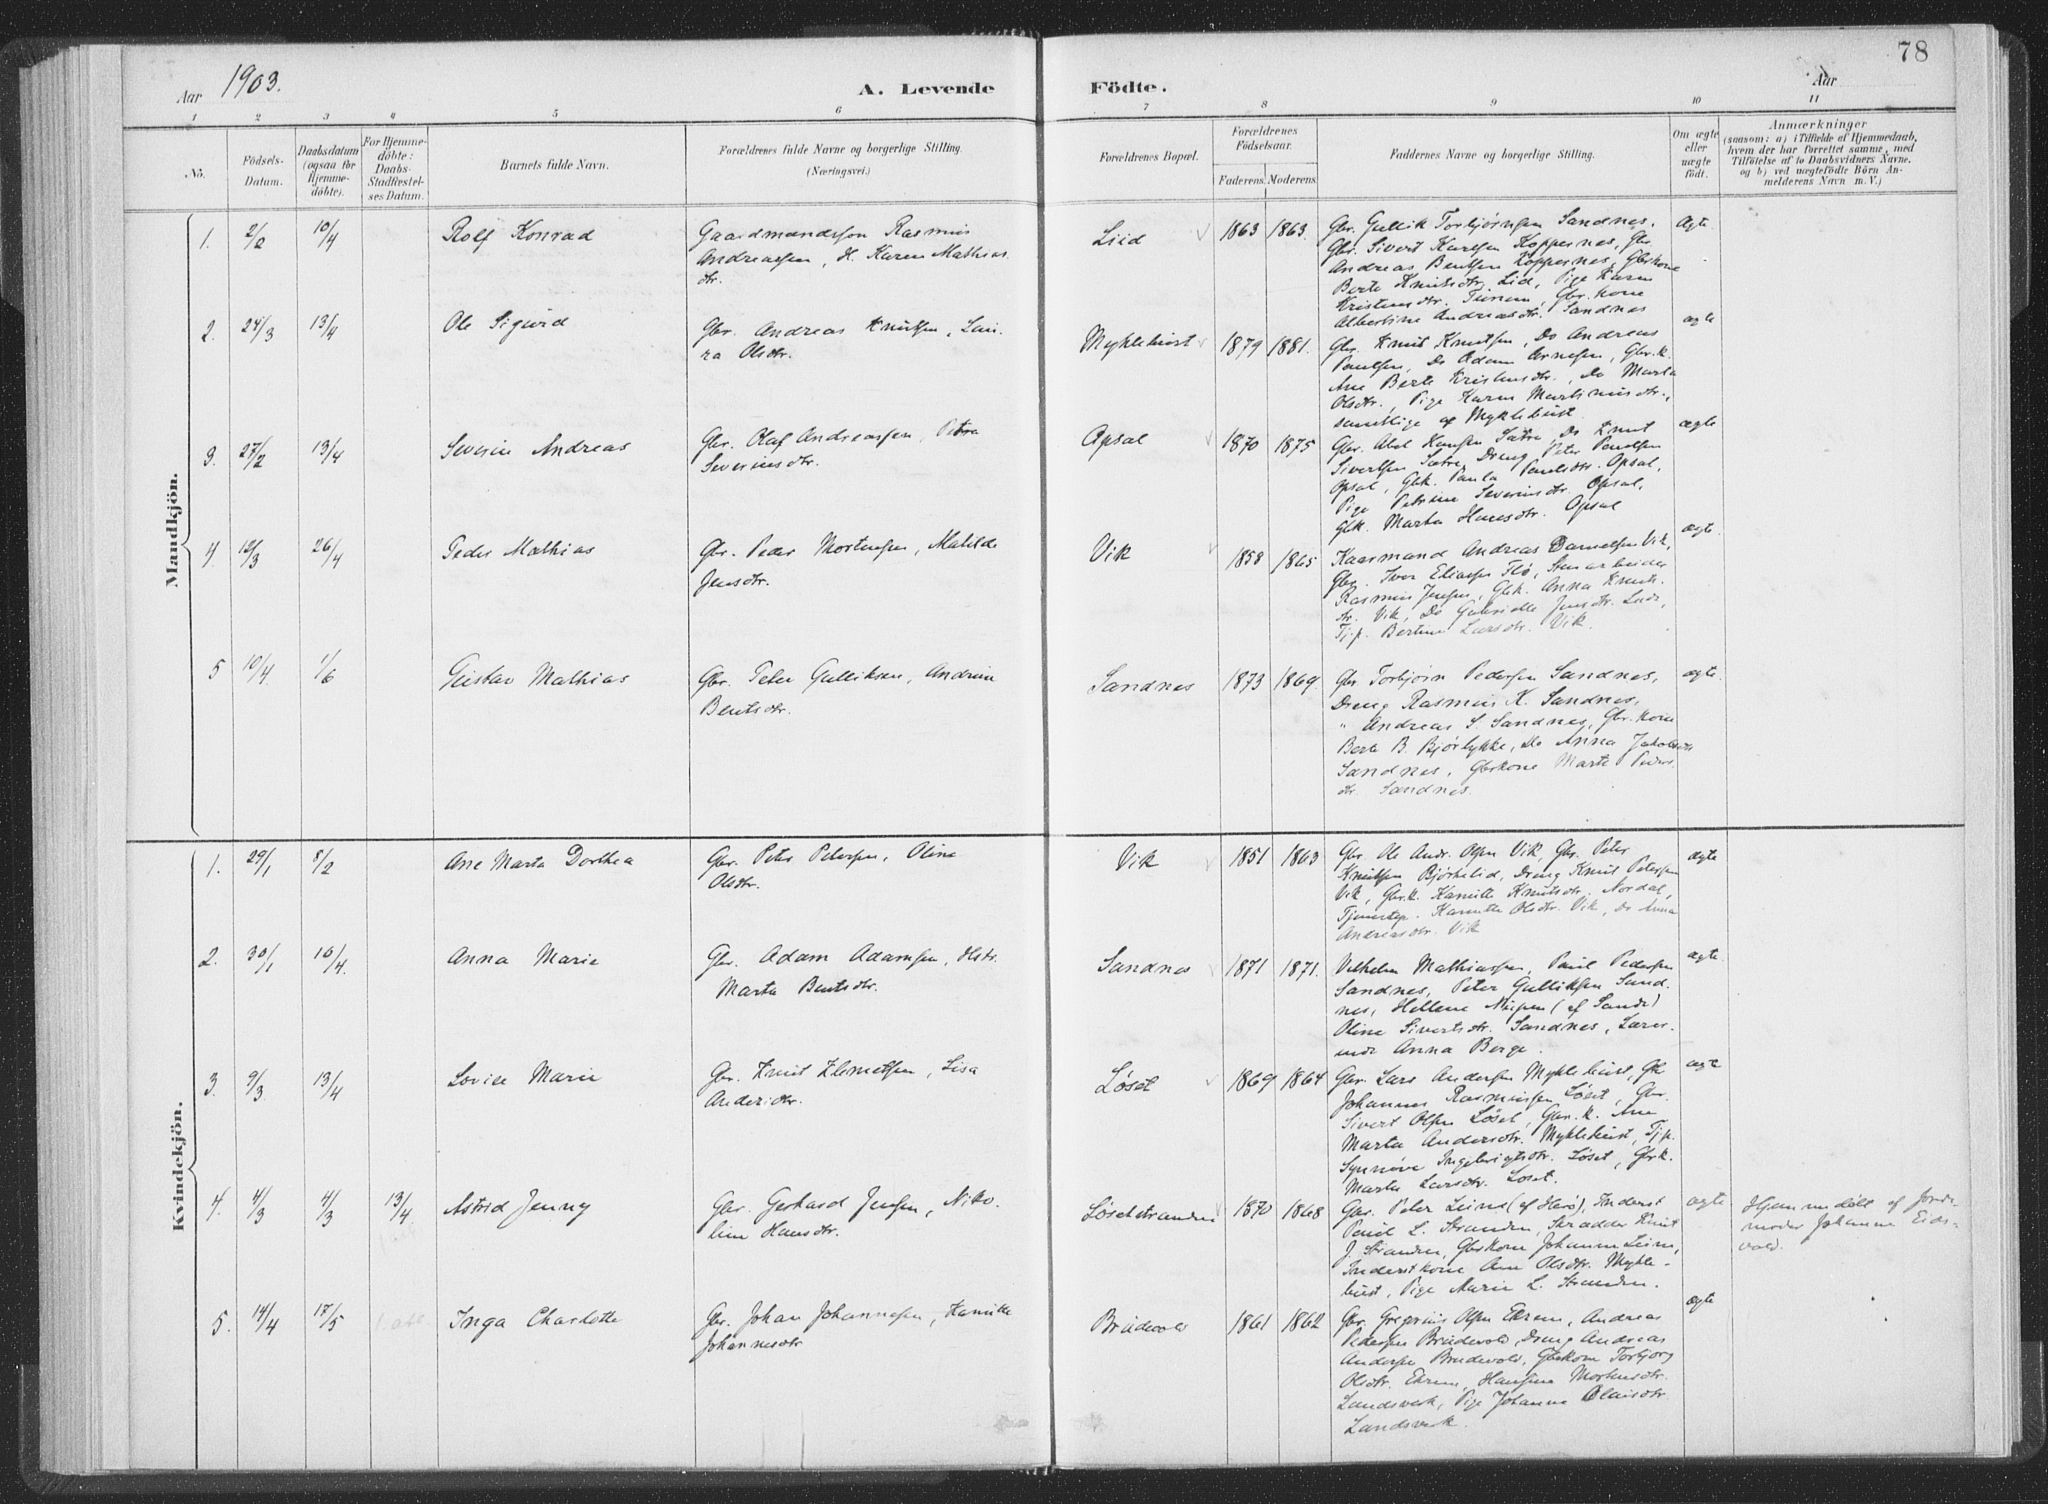 78
Aar 1903.
A. Levende Födte.
Aar
1 2 3 4 5 6 7 8 9 10 11
No.
Födsels-
Datum.
Daabsdatum
(ogsaa for
Hjemme-
döbte).
For Hjemme-
döbte:
Daabs-
Stadfæstel-
ses Datum.
Barnets fulde Navn.
Forældrenes fulde Navne og borgerlige Stilling.
(Næringsvei.)
Forældrenes Bopæl.
Forældrenes
Födselsaar.
Faderens. Moderens.
Faddernes Navne og borgerlige Stilling.
Om ægte
eller
uægte
født.
Anmærkninger
(saasom: a) i Tilfælde af Hjemmedaab,
hvem der har forrettet samme, med
Tilföielse af to Daabsvidners Navne.
og b) ved uægtefödte Börn An-
melderens Navn m. V.)
Mandkjön.
1. 2/2 10/4 Rolf Konrad
Gaardmandssøn Rasmus
Andreassen, H. Karen Mathias
dtr.
Liid 1863 1863.
Gbr. Gullik Torbjørnsen Sandnes,
Gbr. Sivert Karlsen Koppernes, Gbr.
Andreas Bentsen Koppernes, Gbrkone
Berte Knutsdtr. Lid, Pige Karen
Kristensdtr. Tunem, Gbr. kone
Albertine Andreasdtr. Sandnes
ægte.
2. 24/3 13/4 Ole Sigurd
Gbr. Andreas Knutsen, Lau-
ra Olsdtr.
Myklebust 1879 1881.
Gbr. Knut Knutsen, Do Andreas
Paulsen, Do Adam Arnesen, Gbr.k.
Ane Berte Kristensdtr., Do Marta
Olsdtr., Pige Karen Martinusdtr.,
samtlige af Myklebust.
ægte
3. 27/2 13/4 Severin Andreas
Gbr. Olaf Andreassen, Petra
Severinsdtr.
Opsal 1870 1875
Gbr. Abel Hansen Sætre, Do Knut
Sivertsen Sætre, Dreng Peter Paulsen
Opsal, Gbk. Paula Paulsdtr. Opsal,
Pige Petrine Severinsdtr. Opsal,
Gbk. Marta Hansdtr. Opsal
ægte
4. 12/3 26/4 Peder Mathias
Gbr. Peder Mortensen, Matilde
Jensdtr.
Vik 1858 1865
Kaarmand Andreas Danielsen Vik,
Gbr. Iver Eliassen Flø, Stenarbeider
Rasmus Jensen, Gbk. Anna Knuts-
dtr. Vik, Do Gabrielle Jensdtr.
Tj.p. Bertine Larsdtr. Vik.
ægte.
5 10/4. 1/6 Gustav Mathias
Gbr. Peter Gulliksen, Andrine
Bentsdtr.
Sandnes 1873 1869.
Gbr Torbjørn Pedersen Sandnes,
Dreng Rasmus K. Sandnes,
" Andreas S. Sandnes, Gbr. kone
Berte B. Bjørlykke, Do Anna Jakobsdtr
Sandnes, Gbrkone Marte Peders
dtr. Sandnes.
ægte.
Kvindekjön.
1. 29/1 8/2 Ane Marta Dorthea
Gbr. Peter Petersen, Oline
Olsdtr.
Vik 1851 1863
Gbr. Ole Andr. Olsen Vik, Gbr. Peter
Knutsen Bjørkelid, Dreng Knut Petersen
Vik, Gbr.k. Kamille Knutsdtr. Nordal,
Tjenestep. Kamilla Olsdtr. Vik, Do Anna
Andreasdtr. Vik
ægte
2. 30/1 10/4. Anna Marie
Gbr. Adam Adamsen, Hstr.
Marta Bentsdtr.
Sandnes 1871 1871.
Vilhelm Mathiassen, Paul Pedersen
Sandnes, Peter Gulliksen Sand-
nes, Hellene (af Sande)
Oline Sivertsdtr. Sandnes, Lærer-
inde Anna Berge.
ægte.
3. 9/3. 13/4 Lovise Marie
Gbr. Knut Klemetsen, Lisa
Andersdtr.
Løset 1869 1864
Gbr. Lars Andersen Myklebust, Gbr.
Johannes Rasmussen Løset, Gbr.
Sivert Olsen Løset, Gbr.k. Ane
Marta Andersdtr. Myklebust, Tj.p.
Synnøve Ingebrigtsdtr. Løset, Gbr.k.
Marta Larsdtr. Løset.
ægte
4. 4/3 4/3 13/4 Astrid Jenny
Gbr. Gerhard Jensen, Niko-
line Hansdtr.
Løsetstranden 1870 1868
Gbr. Peter Leine (af Herø), Inderst
Paul L. Stranden, Skrædder Knut
J. Stranden, Gbrkone Johanne Leine,
Inderstkone Ane Olsdtr. Mykle-
bust, Pige Marie L. Stranden.
ægte
Hjemmedöbt af Jorde-
moder Johanne Eids-
vold.
5. 14/4 17/5 Inga Charlotte
Gbr. Johan Johannesen, Kamille
Johannesdtr
Brudevold 1861 1862
Gbr. Gregorius Olsen Ekrem, Andreas
Pedersen Brudevold, Dreng Andreas
Andersen Brudevold, Gbrkone Torbjorg
Olsdtr. Ekrem, Hansine Mortensdtr.
Landsverk, Pige Johanne Olausdtr.
Landsverk.
ægte